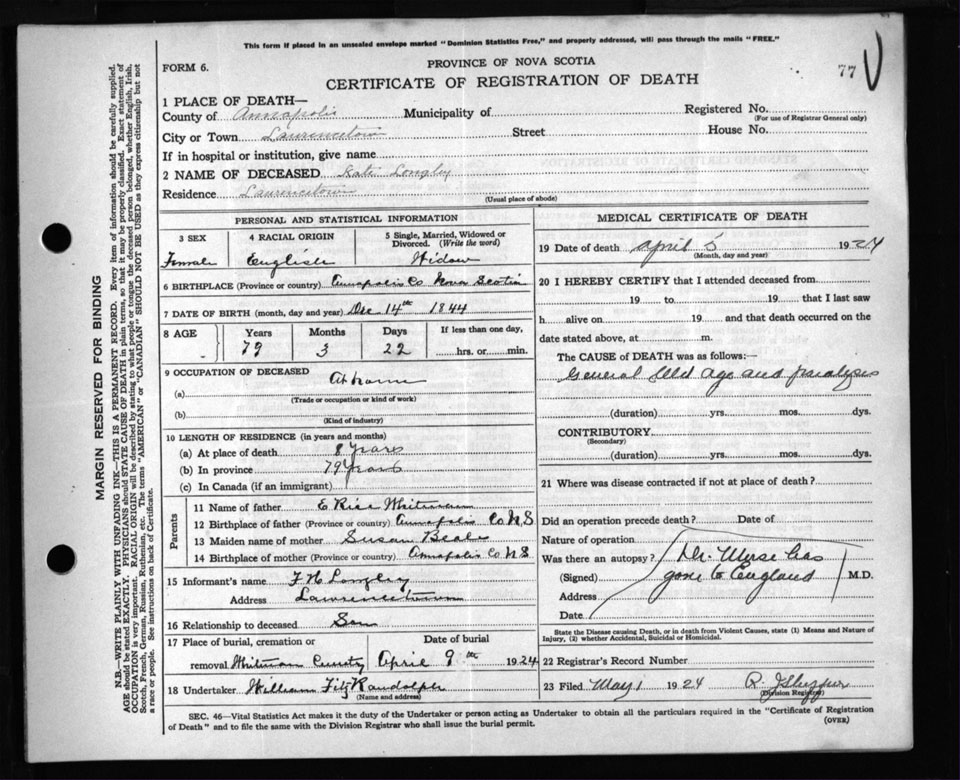 This form if placed in an unsealed envelope marked "Dominion Statistics Free," and properly addressed, will pass through the mails "FREE."
FORM 6.
PROVINCE OF NOVA SCOTIA
CERTIFICATE OF REGISTRATION OF DEATH
77
1 PLACE OF DEATH—
County of Annapolis Municipality of Registered No. (For use of Registrar General only)
City or Town Laurencetown Street House No.
If in hospital or institution, give name
2 NAME OF DECEASED Kate Longley
Residence Laurencetown (Usual place of abode)
PERSONAL AND STATISTICAL INFORMATION
3 SEX 4 RACIAL ORIGIN 5 Single, Married, Widowed or Divorced. (Write the word)
Female English Widow
6 BIRTHPLACE (Province or country) Annapolis Co Nova Scotia
7 DATE OF BIRTH (month, day and year) Dec 14th 1844
8 AGE Years Months Days If less than one day,
79 3 22 hrs. or min.
9 OCCUPATION OF DECEASED At home
(a) (Trade or occupation or kind of work)
(b) (Kind of industry)
10 LENGTH OF RESIDENCE (in years and months)
(a) At place of death 8 Years
(b) In province 79 Years
(c) In Canada (if an immigrant)
Parents
11 Name of father E Rice Whitman
12 Birthplace of father (Province or country) Annapolis Co N S
13 Maiden name of mother Susan Beals
14 Birthplace of mother (Province or country) Annapolis Co N S
15 Informant's name F H Longley
Address Lawrencetown
16 Relationship to deceased Son
17 Place of burial, cremation or removal Whitman Date of burial April 9th 1924
18 Undertaker William FitzRandolph (Name and address)
MEDICAL CERTIFICATE OF DEATH
19 Date of death April 5 1924
(Month, day and year)
20 I HEREBY CERTIFY that I attended deceased from
19 to 19 that I last saw
h alive on 19 and that death occurred on the
date stated above, at m.
The CAUSE of DEATH was as follows:—
General Old Age and paralysis
(duration) yrs. mos. dys.
CONTRIBUTORY
(Secondary)
(duration) yrs. mos. dys.
21 Where was disease contracted if not at place of death?
Did an operation precede death? Date of
Nature of operation
Was there an autopsy? Dr. Morse has
(Signed) gone to England M.D.
Address
Date
State the Disease causing Death, or in death from Violent Causes, state (1) Means and Nature of
Injury, (2) whether Accidental, Suicidal or Homicidal.
22 Registrar's Record Number
23 Filed May 1 1924
(Division Registrar)
SEC. 46—Vital Statistics Act makes it the duty of the Undertaker or person acting as Undertaker to obtain all the particulars required in the "Certificate of Registration
of Death" and to file the same with the Division Registrar who shall issue the burial permit.
(OVER)
MARGIN RESERVED FOR BINDING
N.B.—WRITE PLAINLY WITH UNFADING INK—THIS IS A PERMANENT RECORD. Every item of information should be carefully supplied.
AGE should be stated EXACTLY. PHYSICIANS should STATE CAUSE OF DEATH in plain terms, so that it may be properly classified. Exact statement of
OCCUPATION is very important. RACIAL ORIGIN will be described by stating to what people or tongue the deceased person belonged, whether English, Irish,
Scotch, French, German, Russian, Ruthenian, etc. The terms "AMERICAN" or "CANADIAN" SHOULD NOT BE USED as they express citizenship but not
a race or people. See instructions on back of Certificate.